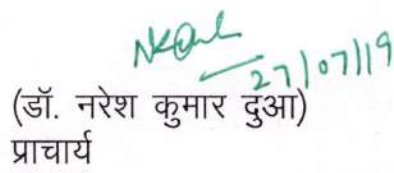 27/07/19
(डॉ. नरेश कुमार दुआ)
प्राचार्य